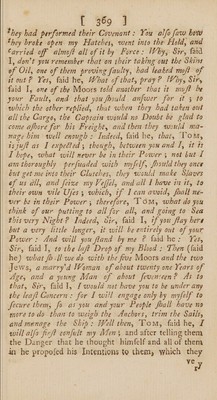 [ 369 ]
they had performed their Covenant: You also saw how
they broke open my Hatches, went into the Hold, and
carried off almost all of it by Force: Why, Sir, said
I, don't you remember that on their taking out the Skins
of Oil, one of them proving faulty, had leaked most of
it out? Yes, said he, What of that, pray? Why, Sir,
said I, one of the Moors told another that it must be
your Fault, and that you should answer for it; to
which the other replied, that when they had taken out
all the Cargo, the Captain would no Doubt be glad to
come ashore for his Freight, and then they would ma-
nage him well enough: Indeed, said he, that, TOM,
is just as I expected; though, between you and I, it is
I hope, what will never be in their Power; not but I
am thoroughly persuaded with myself, should they once
but get me into their Clutches, they would make Slaves
of us all, and seize my Vessel, and all I have in it, to
their own vile Uses; which, if I can avoid, shall ne-
ver be in their Power; therefore, TOM, what do you
think of our putting to all for all, and going to Sea
this very Night? Indeed, Sir, said I, if you stay here
but a very little longer, it will be entirely out of your
Power: And will you stand by me? said he: Yes,
Sir, said I, to the last Drop of my Blood: Then (said
he) what shall we do with the five Moors and the two
Jews, a marry'd Woman of about twenty one Years of
Age, and a young Man of about seventeen? As to
that, Sir, said I, I would not have you to be under any
the least Concern: for I will engage only by myself to
secure them, so as you and your People shall have no
more to do than to weigh the Anchors, trim the Sails,
and menage the Ship: Well then, TOM, said he, I
will also first consult my Men; and after telling them
the Danger that he thought himself and all of them
in he proposed his Intentions to them, which they
ve-